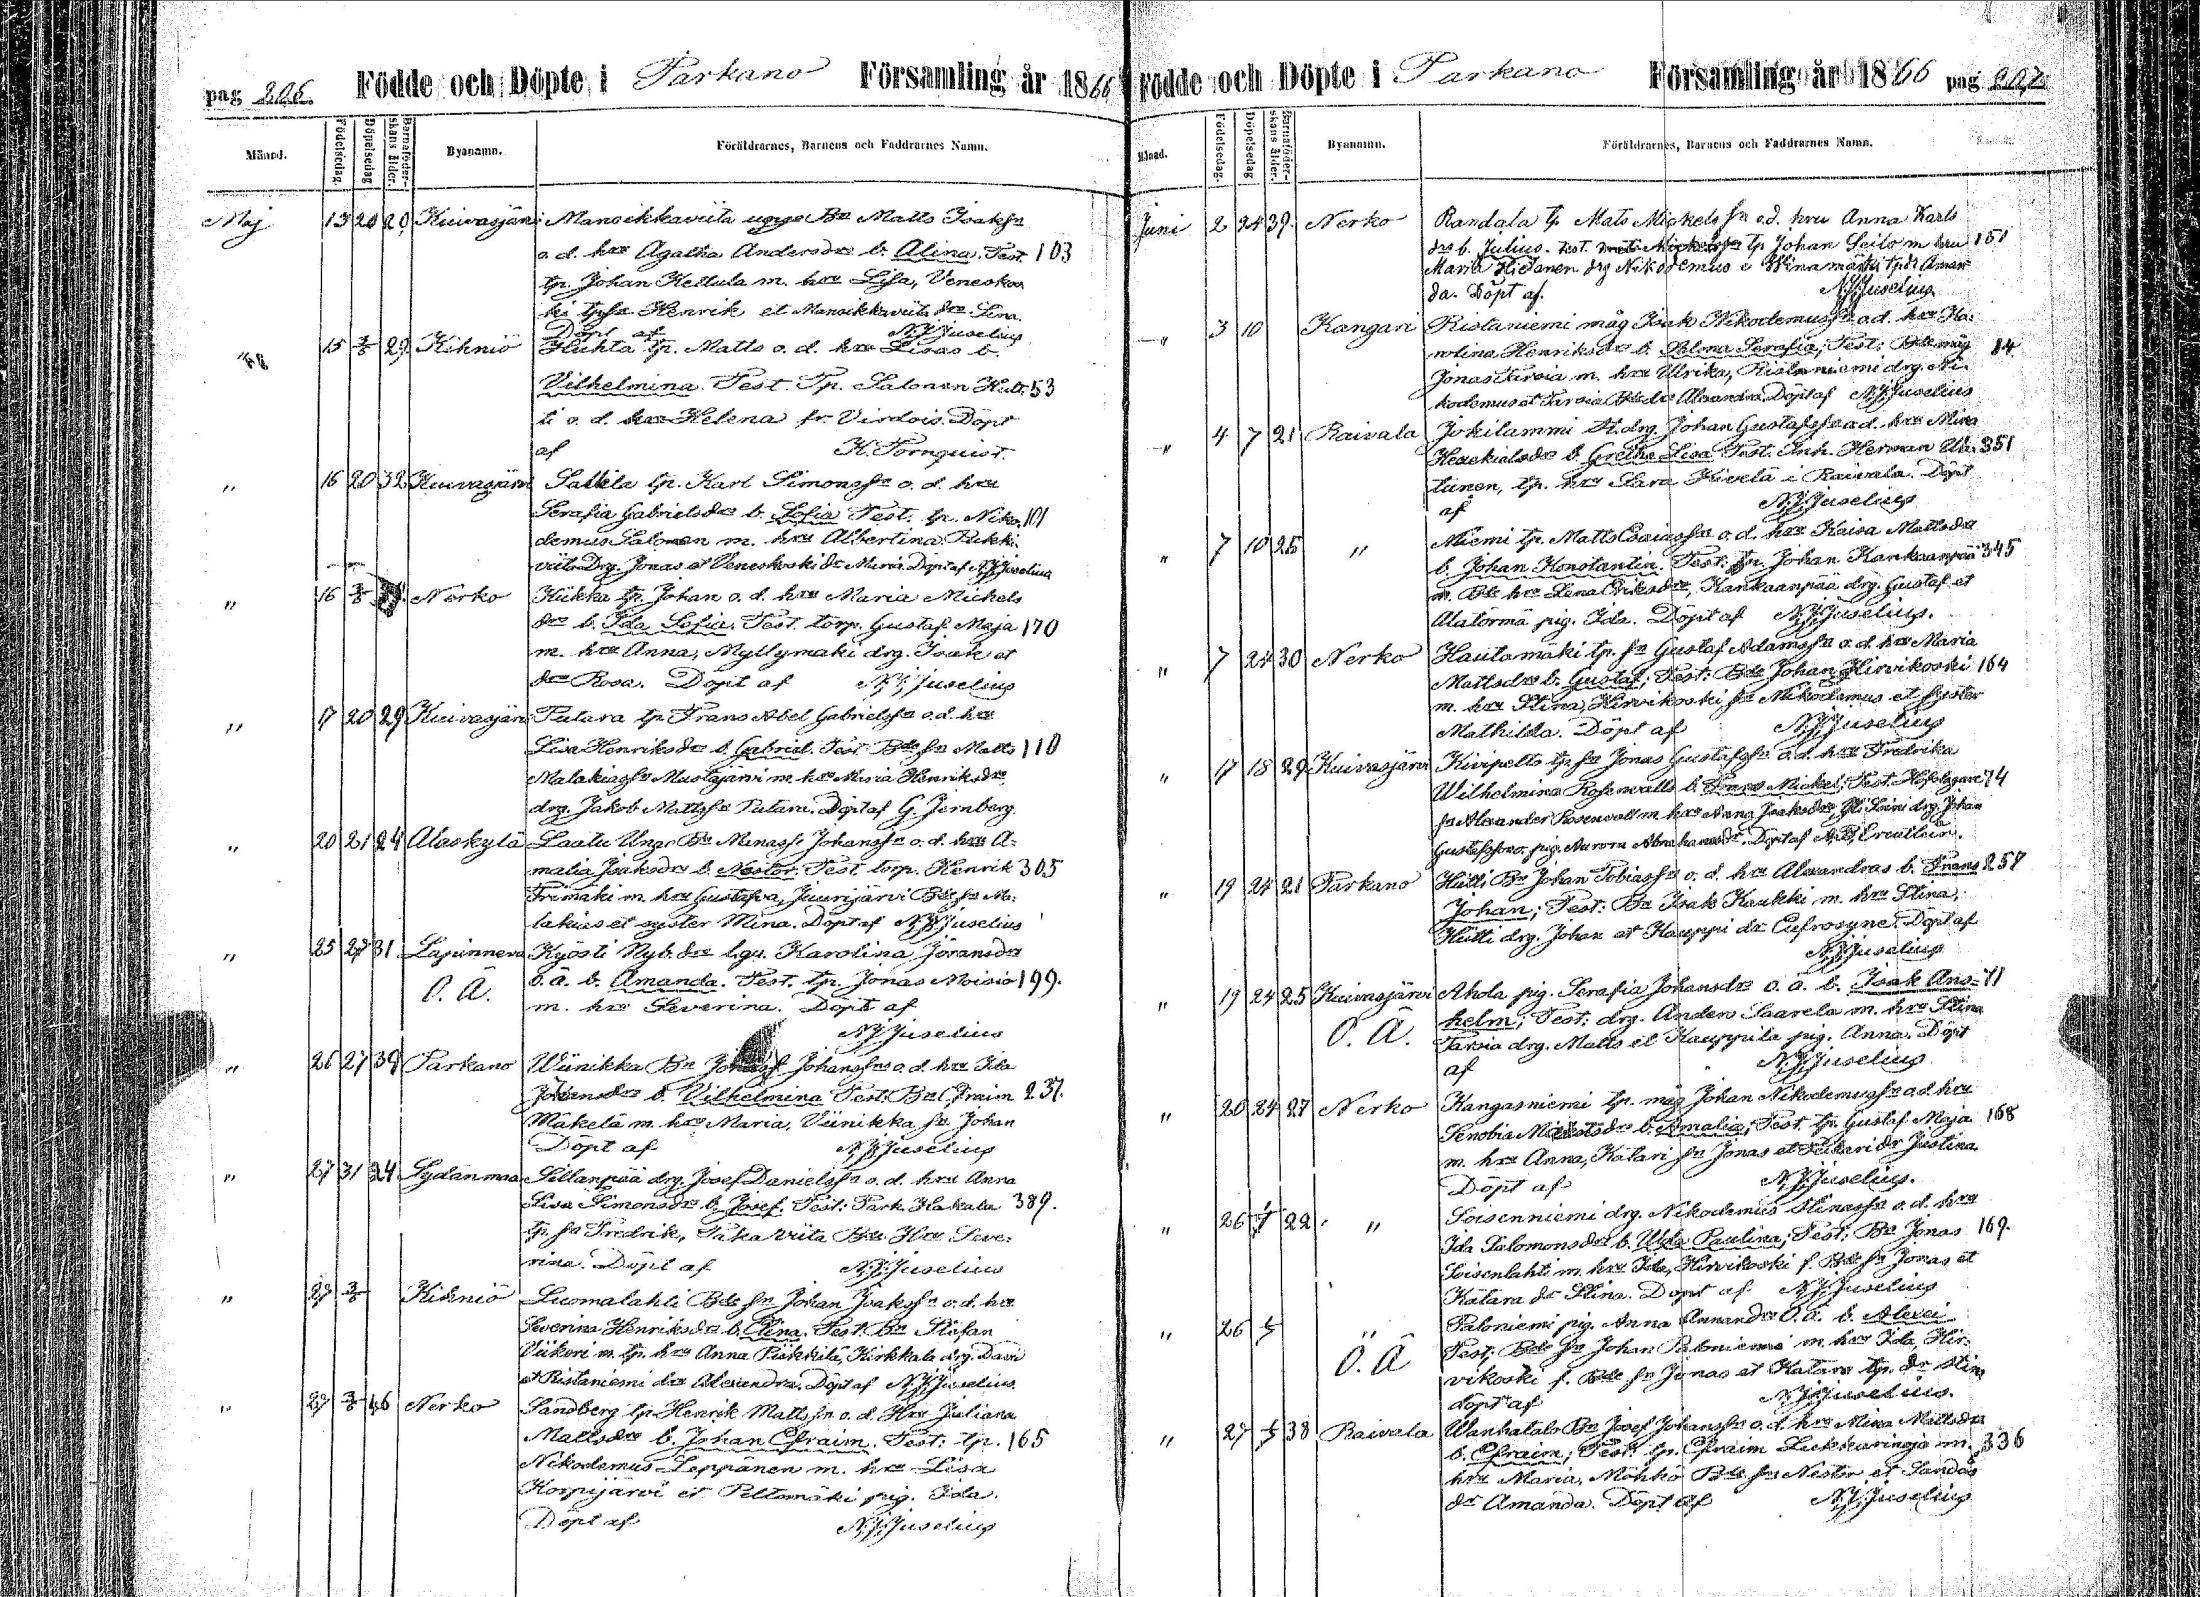 pag 206. Födde och Döpte i Parkano Församling år 1866
Månad. Födelsedag. Döpelsedag Barnaföderskans ålder. Byanamn. Föräldrarnes, Barnens och Faddrarnes Namn.
Maj 13 20 20 Kuivasjärvi Mansikkaviita unge Bn Matts Isaksn
o. d. hru Agatha Andersdr b. Alina. Test. 103
tp. Johan Kellula m. hru Lisa, Venesko-
ki tpsn Henrik et Mansikkaviita dr Lina.
Döpt af N.J.Juselius
15 29 Kihniö Huhta tp. Matts o. d. hru Lisas b.
Vilhelmina. Test. Tp. Salonen Hult- 53
ti o. d. hru Helena fr. Virdois. Döpt
af K. Törnquist.
" 16 20 32 Kuivasjärvi Sallila tp. Karl Simonssn o. d. hru
Serafia Gabrielsdr b. Sofia Test. tp. Niko- 101
demus Salonen m. hru Albertina, Pukki-
viita Drg. Jonas et Veneskoski dr Maria. Döpt af N.J.Juselius
" 16 Nerko Kiikka tp. Johan o. d. hru Maria Michels
dr b. Ida Sofia. Test. torp. Gustaf Maja 170
m. hru Anna, Myllymäki drg. Isak et
dr Rosa. Döpt af N.J.Juselius
" 17 20 29 Kuivasjärvi Putara tp Frans Abel Gabrielssn o. d. hru
Lisa Henriksdr b. Gabriel. Test Bde sn Matts 110
Malakiassn Mustajärvi m. hru Maria Henriksdr
drg. Jakob Mattssn Putara. Döpt af G. Jernberg.
" 20 21 24 Alaskylä Laatu Unge Bn Manasse Johanssn o. d. hru A-
malia Isaksdr b. Nestor. Test. torp. Henrik 305
m. hru Gustafva, Juurijärvi Bde sn Ma-
lakias et syster Mina. Döpt af N.J.Juselius
" 25 27 31 Lapinneva Kyösti Nyb. dr lgu. Karolina Göransdr
O. Ä. o. ä. b. Amanda. Test. tp. Jonas Moisio 199.
m. hru Severina. Döpt af
N.J.Juselius
" 26 27 39 Parkano Wiinikka Bn Johanssn o. d. hru Ida
Johansdr b. Vilhelmina Test: Bn Efraim 237.
Mäkelä m. hru Maria, Viinikka sn Johan
Döpt af N.J.Juselius
" 27 31 24 Sydänmaa Sillanpää drg. Josef Danielssn o. d. hru Anna
Lisa Simonsdr b. Josef. Test: Park. Hakala 389.
tp. sn Fredrik, Takaviita Bde Hru Seve-
rina. Döpt af N.J.Juselius
" 27 Kihniö Luomalahti Bde sn Johan Isakssn o. d. hru
Severina Henriksdr b. Elina. Test. Bn Stefan
Viikari m. tp. hru Anna Kirkkala drg. David
et Ristaniemi dr Alexandra. Döpt af N.J.Juselius.
" 27 46 Nerko Sandberg tp Henrik Mattssn o. d. Hru Juliana
Mattsdr b. Johan Efraim. Test: tp. 165
Nikodemus Leppänen m. hru Lisa
Korpijärvi et Peltomäki pig. Ida.
Döpt af N.J.Juselius
Födde och Döpte i Parkano Församling år 1866 pag 207.
Månad. Födelsedag. Döpelsedag Barnaföderskans ålder. Byanamn. Föräldrarnes, Barnens och Faddrarnes Namn.
Juni 2 24 39. Nerko Randala tp Mats Mickelssn o.d. hru Anna Karls
dr b. Julius. Test. tp Johan Seilo m hru 151
Maria Hietanen drg Nikodemus
da. Döpt af. N.J.Juselius
" 3 10 Kangari Ristaniemi måg Isak Nikodemussn o. d. hru Ka-
rolina Henriksdr b. Selma Serafia; Test: Bde måg 84
Jonas Tarsia m. hru Ulrika, Ristaniemi drg. Ni-
kodemus et Tarsia Bde dr Alexandra. Döpt af N.J.Juselius
" 4 7 21 Raivala Jokilammi St. drg. Johan Gustafssn o. d. hru Mina
Hesekielsdr b. Gretha Lisa Test. Inh. Herman Un- 351
tinen, tp. hru Sara Kivelä i Raivala. Döpt
af N.J.Juselius
" 7 10 25 " Niemi tp. Matts Esaiassn o. d. hru Kaisa Mattsdr
b. Johan Konstantin. Test: tp. Johan Kankaanpää 345
m. Bde hru Lena Eriksdr, Kankaanpää drg. Gustaf et
Alatörmä pig. Ida. Döpt af N.J.Juselius.
" 7 24 30 Nerko Hautamäki tp. sn Gustaf Adamssn o. d. hru Maria
Mattsdr b. Gustaf; Test: Bde Johan Hirvikoski 164
m. hru Stina, Hirvikoski sn Nikodemus et syster
Mathilda. Döpt af N.J.Juselius
" 17 18 29 Kuivasjärvi Kivipelto tp sn Jonas Gustafssn o. d. hru Fredrika
Wilhelmina Rosenvalls b. Frans Mickel; Test. 74
sn Alexander Rosenvall m hru Anna Isaksdr, drg. Johan
Gustafsson o. pig. Aurora Abrahamsdr. Döpt af
" 19 24 21 Parkano Hütti Bn Johan Tobiassn o. d. hru Alexandras b. Frans 257
Johan; Test: Bn Isak Kaukki m. hru Stina,
Hütti drg. Johan et Kauppi dr Eufrosyne. Döpt af
N.J.Juselius
" 19 24 25 Kuivasjärvi Ahola pig. Serafia Johansdr o. ä. b. Isak Ans- 71
O. Ä. helm; Test: drg. Anders Saarela m. hru Stina
Tarsia drg. Matts et Kauppila pig. Anna. Döpt
af N.J.Juselius
" 20 24 27 Nerko Kangasniemi tp. måg Johan Nikodemussn o. d. hru
Senobia b. Amalia; Test. tp. Gustaf Maja 168
m. hru Anna, Kätari sn Jonas et dr Justina.
Döpt af N.J.Juselius.
" 26 22 " Soisenniemi drg. Nikodemus o. d. hru
Ida Salomonsdr b. Ulda Paulina; Test: Bn Jonas 169.
Soisenlahti m. hru Ida, Hirvikoski f. Bde sn Jonas et
Kätara dr Stina. Döpt af N.J.Juselius
" 26 " Paloniemi pig. Anna Annandr O. ä. b. Alexei
O. Ä Test: Bde sn Johan Paloniemi m. hru Ida, Hir-
vikoski f. Bde sn Jonas et Katara tp. dr Stina
döpt af N.J.Juselius.
" 27 38 Raivala Wanhatalo Bn Josef Johanssn o. d. hru Mina Mattsdr
b. Efraim; Test. tp. Efraim m. 336
hru Maria, Möhkö Bde sn Nestor et Sandås
dr Amanda. Döpt af N.J.Juselius